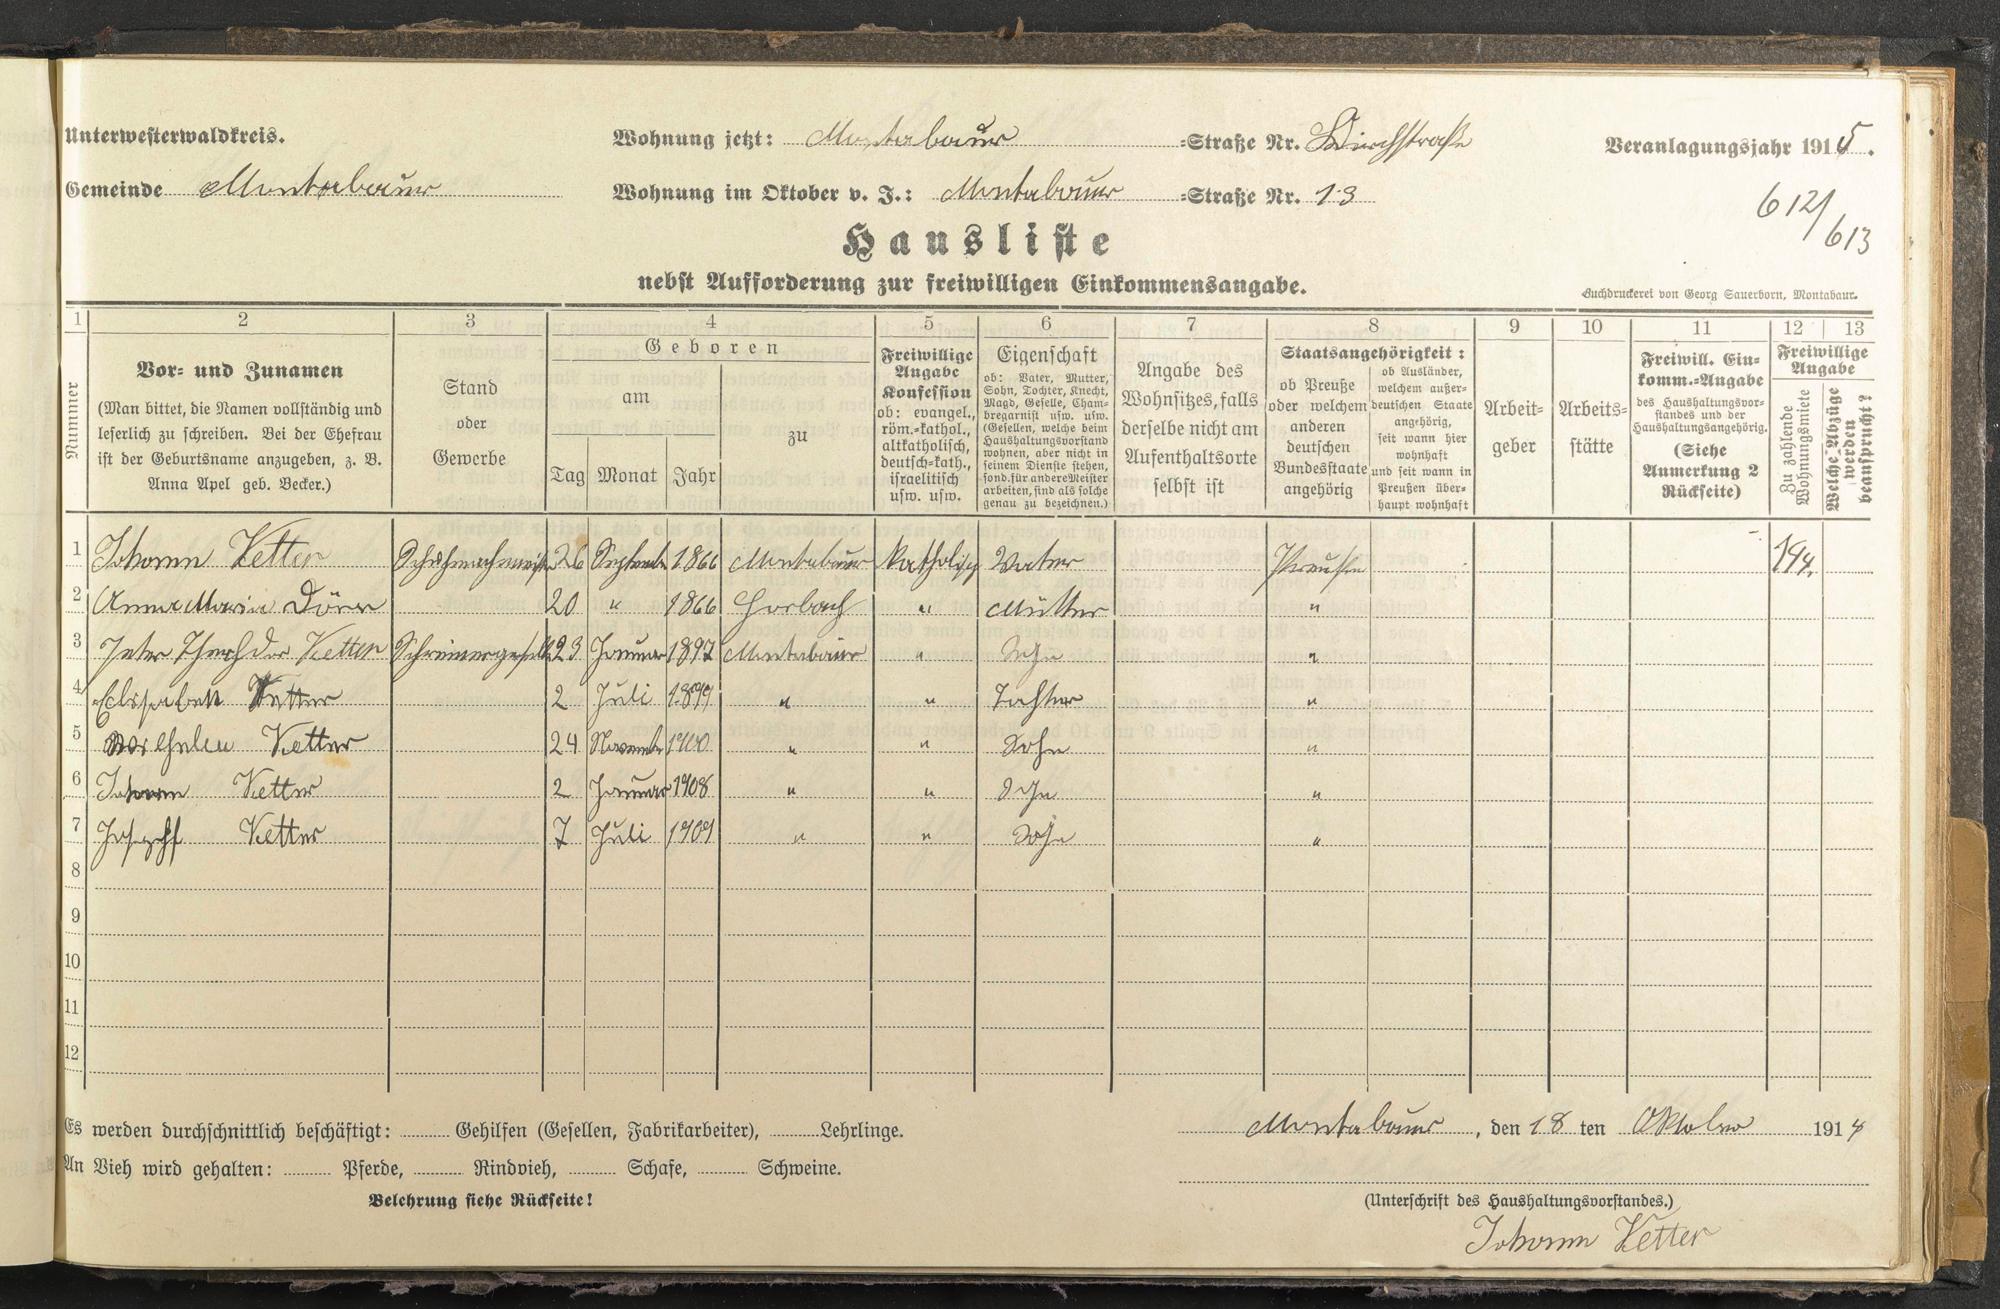 Unterwesterwaldkreis.
Wohnung jetzt: Montabaur -Straße Nr. Kirchstraße
Veranlagungsjahr 1915.
Gemeinde Montabaur
Wohnung im Oktober v. J.: Montabaur -Straße Nr. 13
612/613
Hausliste
nebst Aufforderung zur freiwilligen Einkommensangabe.
Buchdruckerei von Georg Sauerborn, Montabaur.
1 2 3 4 5 6 7 8 9 10 11 12 13
Nummer
Vor- und Zunamen
(Man bittet, die Namen vollständig und
leserlich zu schreiben. Bei der Ehefrau
ist der Geburtsname anzugeben, z. B.
Anna Apel geb. Becker.)
Stand
oder
Gewerbe
Geboren
am
Tag Monat Jahr
zu
Freiwillige
Angabe
Konfession
ob: evangel.,
röm.-kathol.,
altkatholisch,
deutsch-kath.,
israelitisch
usw. usw.
Eigenschaft
ob: Vater, Mutter,
Sohn, Tochter, Knecht,
Magd, Geselle, Cham-
bregarnist usw. usw.
(Gesellen, welche beim
Haushaltungsvorstand
wohnen, aber nicht in
seinem Dienste stehen,
sond. für andere Meister
arbeiten, sind als solche
genau zu bezeichnen.)
Angabe des
Wohnsitzes, falls
derselbe nicht am
Aufenthaltsorte
selbst ist
Staatsangehörigkeit:
ob Preuße
oder welchem
anderen
deutschen
Bundesstaate
angehörig
ob Ausländer,
welchem außer-
deutschen Staate
angehörig,
seit wann hier
wohnhaft
und seit wann in
Preußen über-
haupt wohnhaft
Arbeit-
geber
Arbeits-
stätte
Freiwill. Ein-
komm.-Angabe
des Haushaltungsvor-
standes und der
Haushaltungsangehörig.
(Siehe
Anmerkung 2
Rückseite)
Freiwillige
Angabe
Zu zahlende
Wohnungsmiete
Welche Abzüge
werden
beansprucht?
1 Johann Ketter Schuhmachermeister 26 September 1866 Montabaur katholisch Vater Preußen 194.
2 Anna Maria Dörr 20 " 1866 Horbach " Mutter "
3 Peter Theodor Ketter Schreinergeselle 23 Januar 1897 Montabaur " Sohn "
4 Elisabeth Ketter 2 Juli 1899 " " Tochter "
5 Wilhelm Ketter 24 November 1900 " " Sohn "
6 Johann Ketter 2 Januar 1908 " " Sohn "
7 Joseph Ketter 7 Juli 1909 " " Sohn "
8
9
10
11
12
Es werden durchschnittlich beschäftigt: Gehilfen (Gesellen, Fabrikarbeiter), Lehrlinge.
Montabaur, den 18 ten Oktober 1914
An Vieh wird gehalten: Pferde, Rindvieh, Schafe, Schweine.
Belehrung siehe Rückseite!
(Unterschrift des Haushaltungsvorstandes.)
Johann Ketter